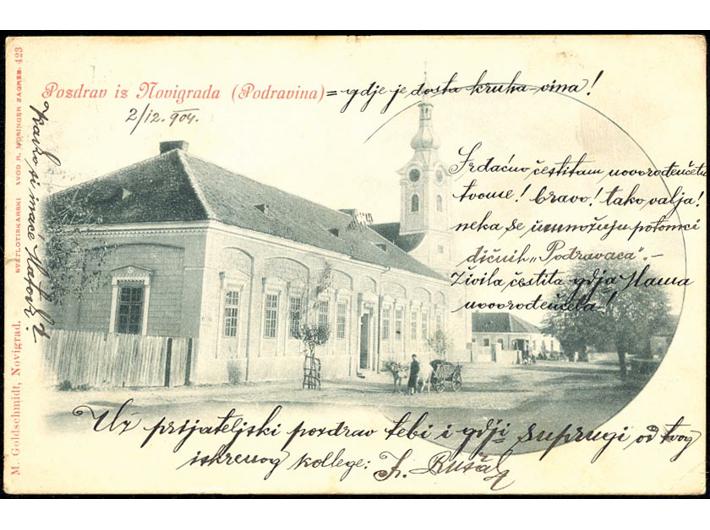 Pozdrav iz Novigrada (Podravina) = gdje je dosta kruha - vina!
2/12. 904.
Srdačno čestitam novorođenčetu
tvome! bravo! tako valja!
neka se umnožuju potomci
dičnih „Podravaca“. –
Živila čestita gdja Mama
novorođenčeta!
Uz prijateljski pozdrav tebi i gdji supruzi od tvog
iskrenog kollege:
kako si inače Matović?
M. Goldschmidt, Novigrad.
SVĚTLOTISKARSKI ZAVOD R. MOSINGER ZAGREB. 423